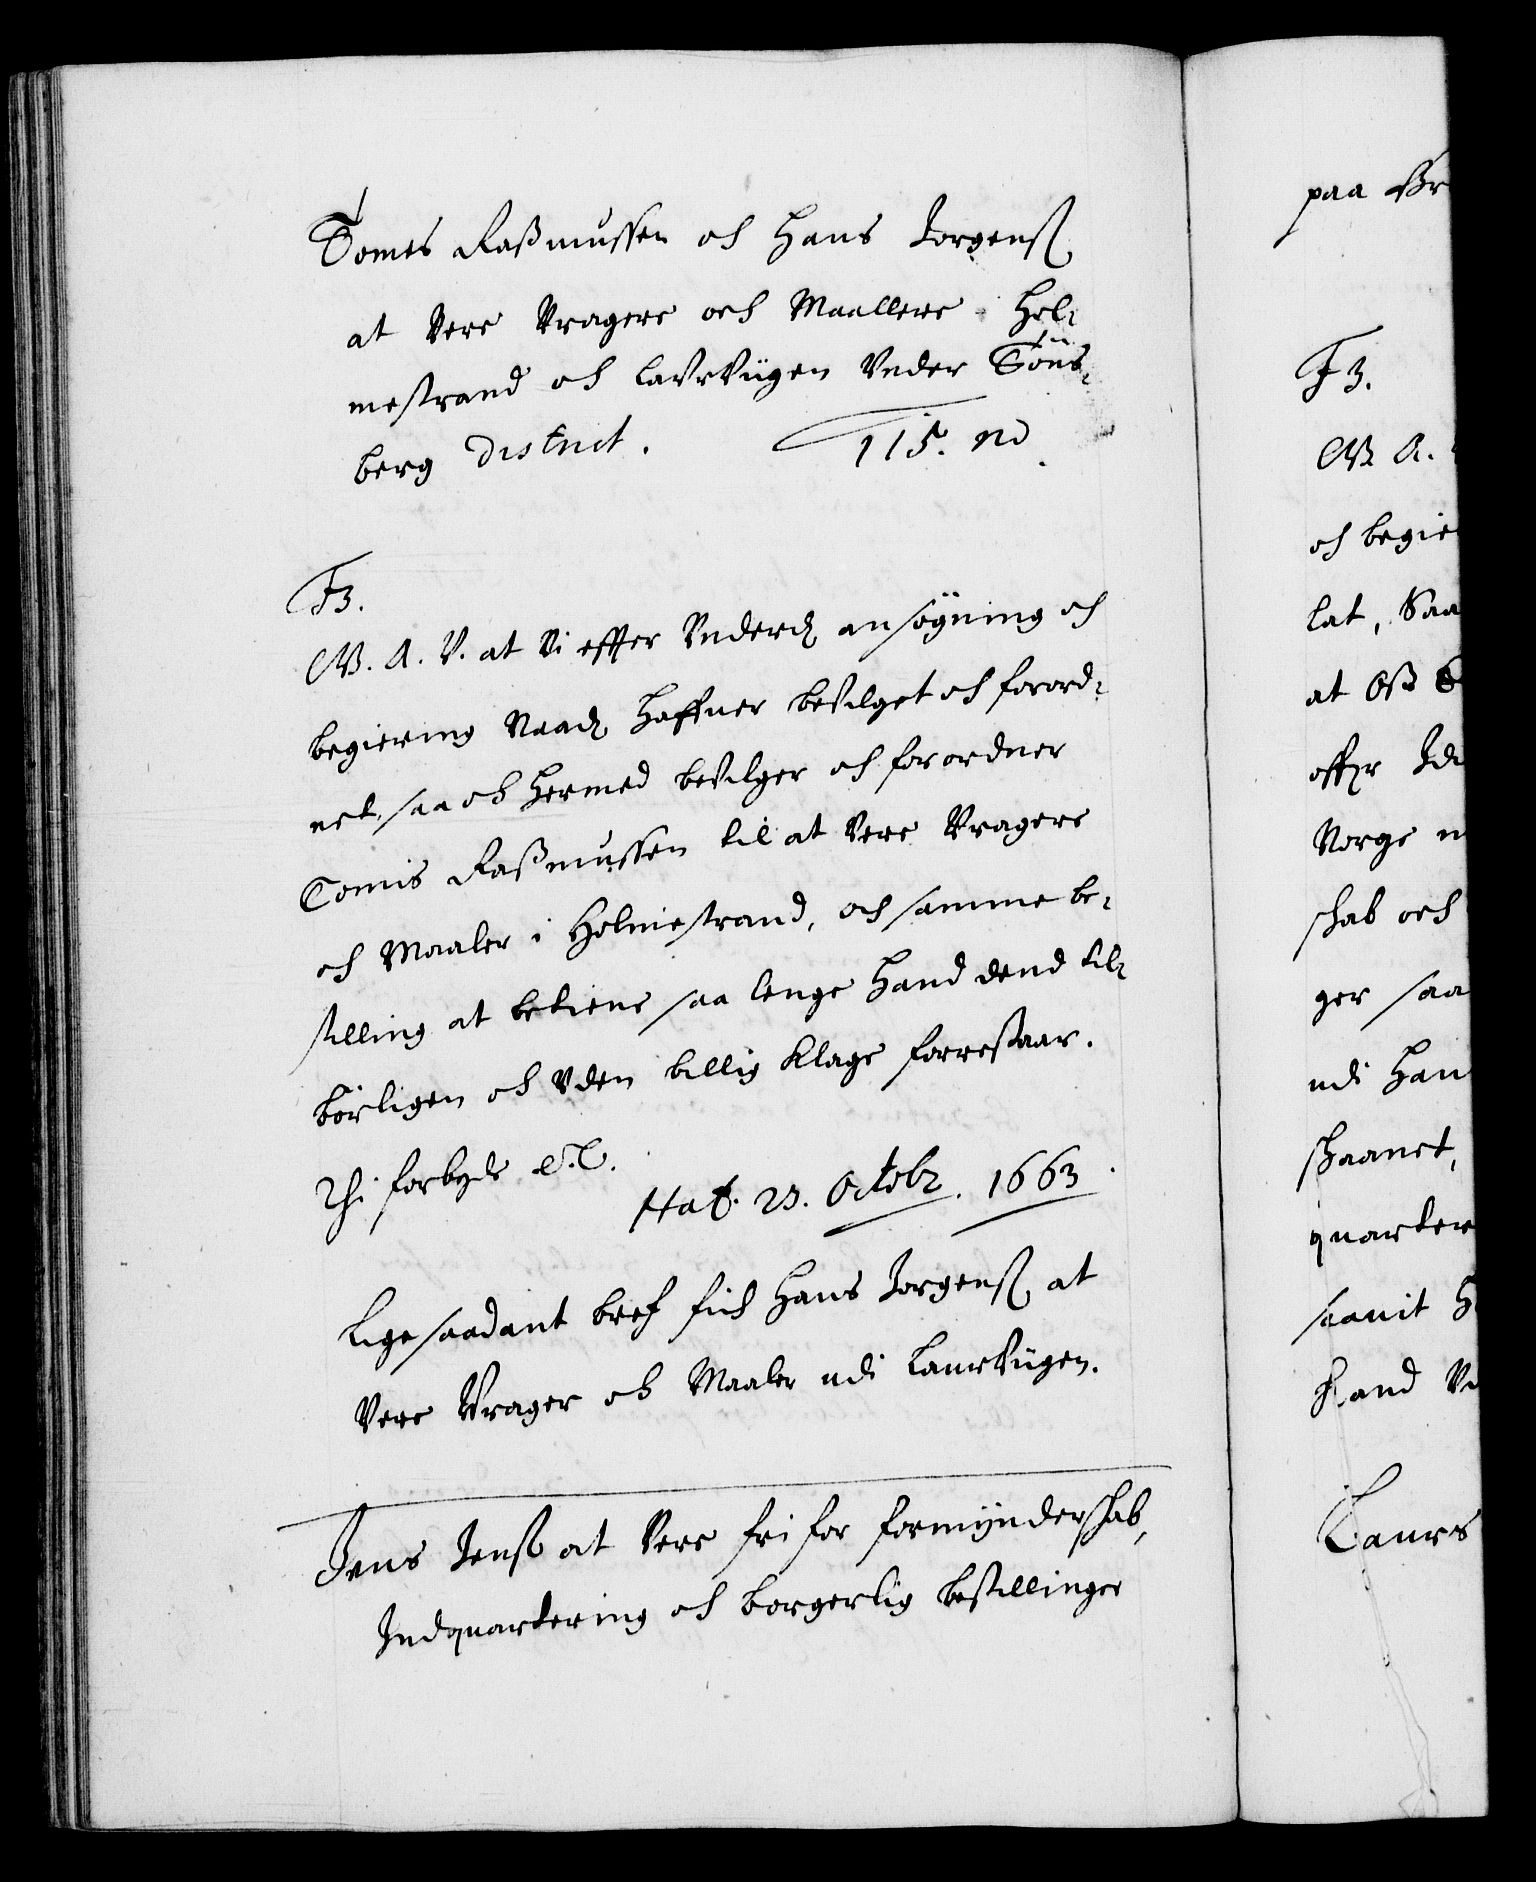 Tomes Rasmussen och Hans Jorgenss
at Vere Vragere och Maallere i Hol¬
mestrand och LavrViigen Vnder Töns¬
berg District. 115. no.
F3.
G. A. V. at Vi effter Vnderd ansögning och
begiering Naad haffuer beVilget och forord¬
net, saa och hermed beVilger och forordner
Tomis Rasmussen til at Vere Vragere
och Maaler i Holmestrand, och samme be¬
stilling at betiene saa lenge hand dend til¬
börligen och Vden billig Klage forrestaar.
Thi forbyde etc.
Haf. 23. Octobr. 1663.
Lige saadant bref fich Hans Jorgenss at
Vere Vrager och Maaler udi LaurViigen.
Jens Jenss at Vere fri for formynderschab,
Indquartering och borgerlig bestillinger
paa
F3.
och begie
lat, Saa
at Oss
offr
Norge
schab och
ger saa
udi Han
schaanet,
quarter
saavit H
hand Ve
Laurs